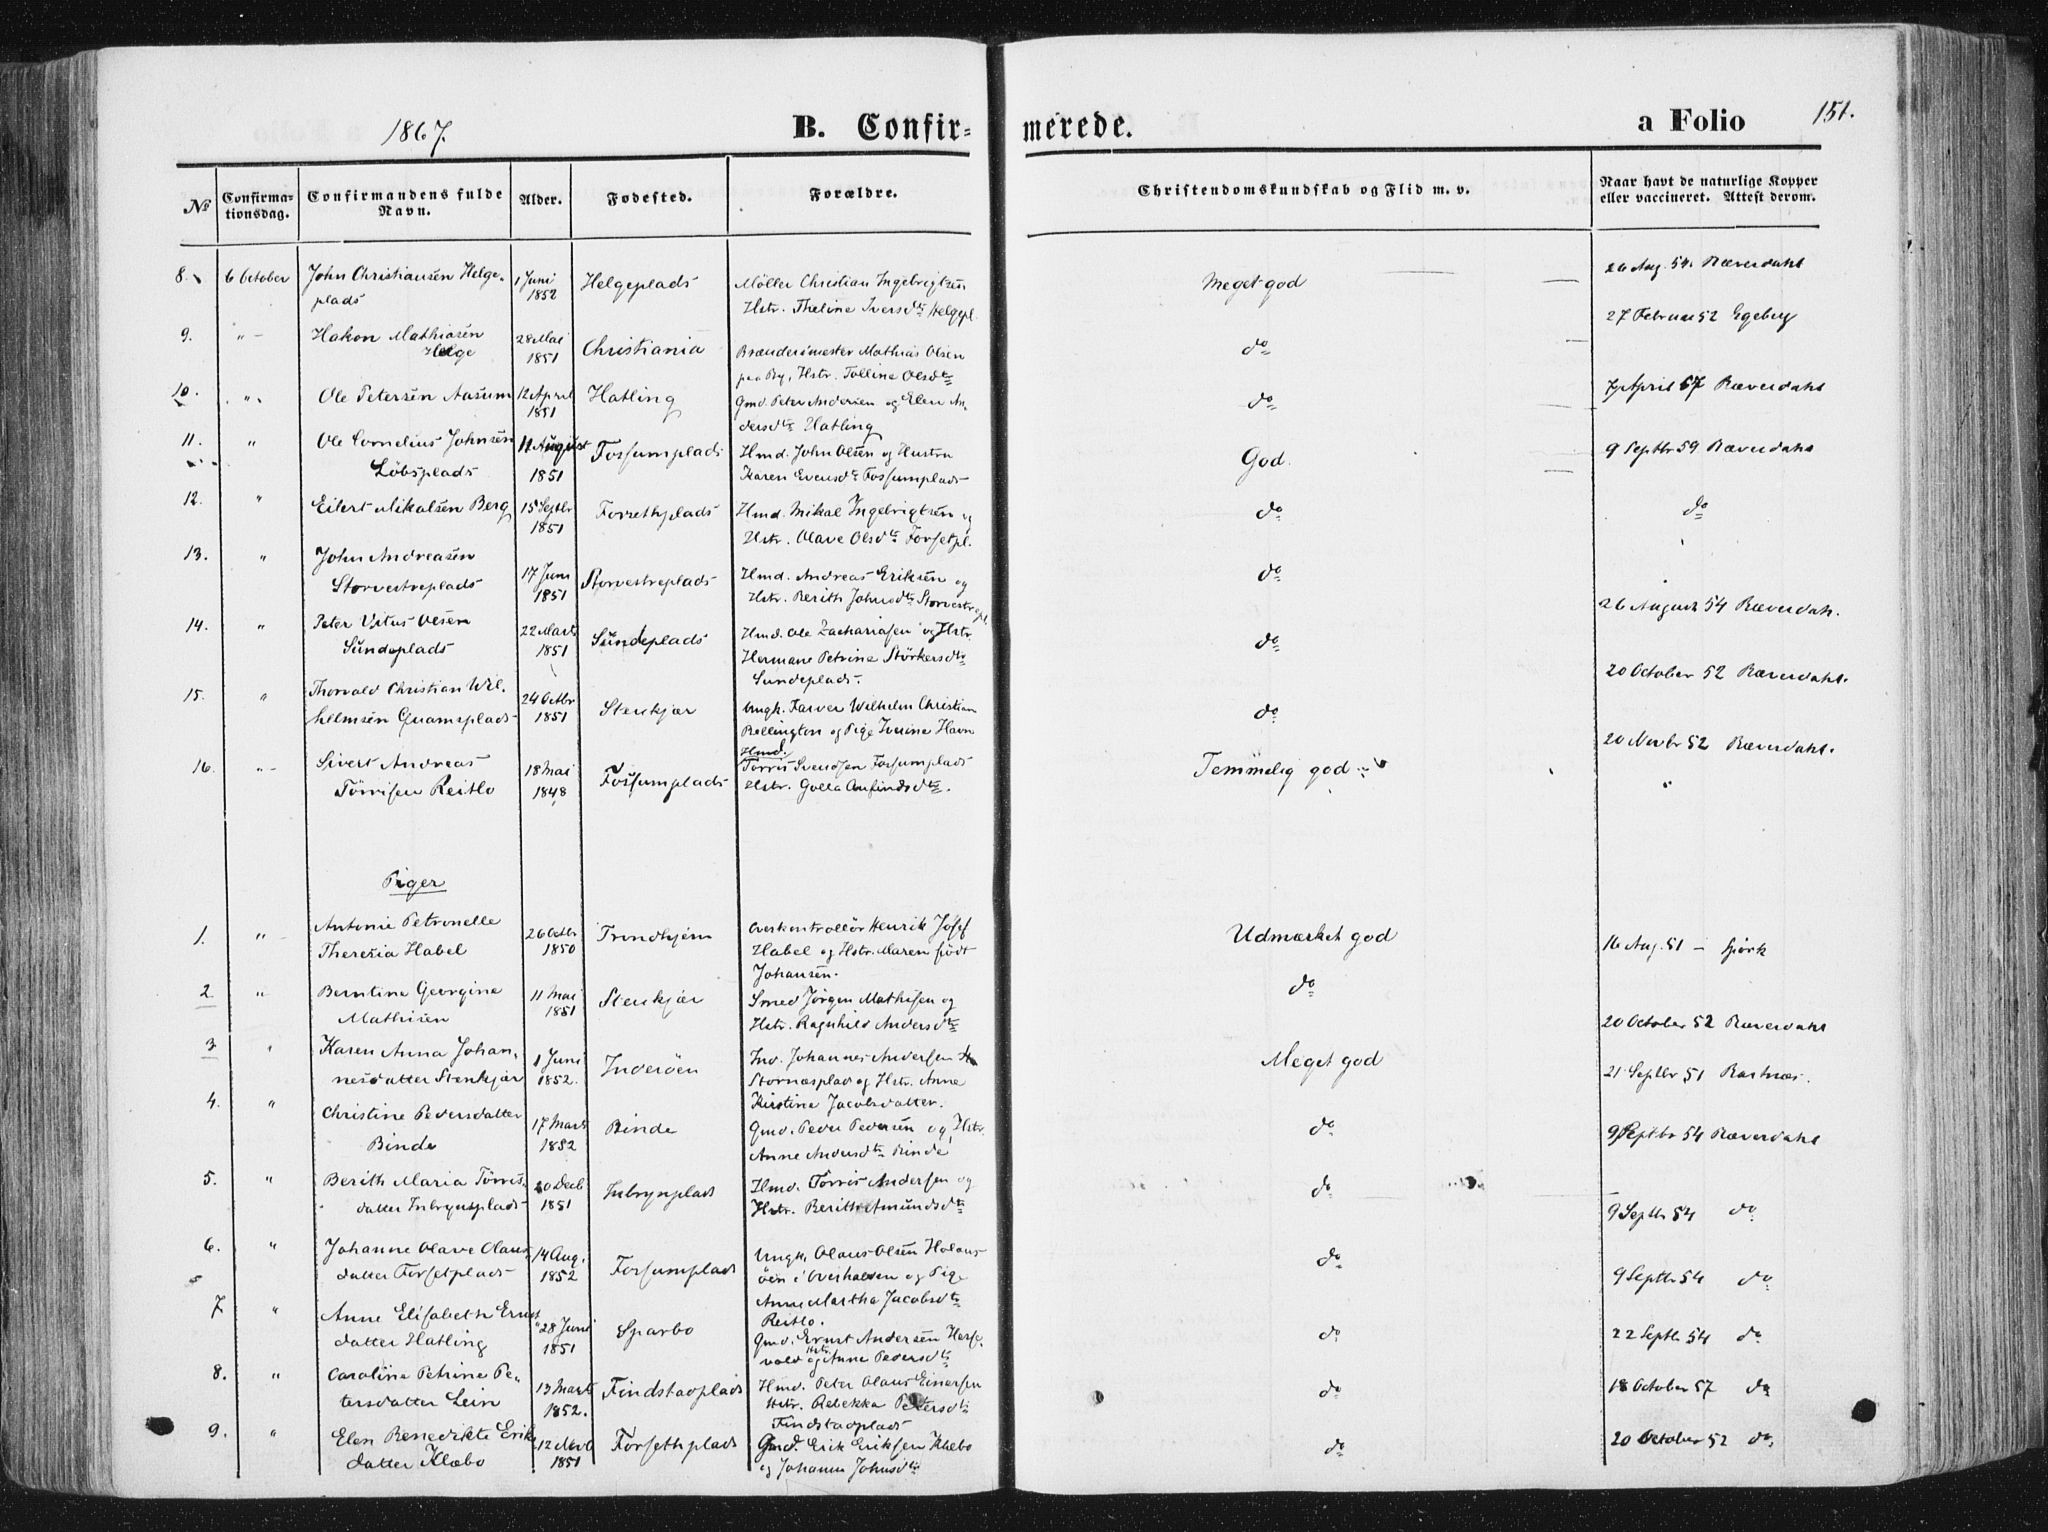 1867.
B. Confir-
merede.
a Folio
151.
No
Confirma-
tionsdag.
Confirmandens fulde
Navn.
Alder.
Fødested.
Forældre.
Christendomskundskab og Flid m. v.
Naar havt de naturlige Kopper
eller vaccineret. Attest derom.
8. 6 October John Christiansen Helge- 1 Juni Helgeplads Möller Christian Ingebrigtsen Meget god 26 Aug. 54. Ræverdahl
plads 1852 Hstr. Theline Iversdtr Helgepl.
9. " Hakon Mathiasen 28 Mai Christiania Brænderimester Mathias Olsen do 27 Februar 52 Egeberg
Helge 1851 paa By, Hstr. Tolline Olsdtr
10. " Ole Petersen Aasum 12 April Hatling Gmd. Peter Andersen og Elen An- do 7 April 67 Ræverdahl
1851 dersdtr Hatling
11. " Ole Cornelius Johnsen 11 August Fossumplads Hmd. John Olsen og Hustru God. 9 Septbr 59 Ræverdahl
Löbsplads 1851 Karen Evensdtr Fossumplads
12. " Eilert Mikalsen Berg 15 Septbr Forsethplads Hmd. Mikal Ingebrigtsen og do do
1851 Hstr. Olave Olsdtr Forsetpl.
13. " John Andreasen 17 Juni Storvestreplads Hmd. Andreas Eriksen og do
Storvestreplads 1851 Hstr. Berith Johnsdtr Storvestrepl.
14. " Peter Vitus Olsen 22 Marts Sundeplads Hmd. Ole Zachariasen og Hstr. do 26 August 54 Ræverdah.
Sundeplads 1851 Hermane Petrine Störkersdtr
Sundeplads.
15. " Thorvald Christian Wil- 24 Octbr Stenkjær Ungk. Farver Wilhelm Christian do 20 October 52 Ræverdahl.
helmsen Quamsplads 1851 Bellington og Pige Iverine Havn
16. " Sivert Andreas 18 Mai Fossumplads Hmd. Törris Svendsen Fossumplads Temmelig god 20 Novbr 52 Ræverdahl.
Törrisen Reitlo 1848 Hstr. Golla Anfindsdtr. "
Piger
1. " Antonie Petronelle 26 Octbr Trondhjem Overkontrollör Henrik Josef Udmærket god 16 Aug. 51 – Hjörk
Theresia Habel 1850 Habel og Hstr. Maren född
Johansen.
2 " Berntine Georgine 11 Mai Stenkjær Smed Jörgen Mathisen og do 20 October 52 Ræverdahl
Mathisen 1851 Hstr. Ragnhild Andersdtr
3 " Karen Anna Johan- 1 Juni Inderöen Ind. Johannes Andersen Meget god 21 Septbr 51 Rastnæs.
nesdatter Stenkjær 1852. Stornæsplad og Hstr. Anne
Kirstine Jacobsdatter.
4. " Christine Pedersdatter 17 Marts Binde Gmd. Peder Pedersen og Hstr. do 9 Septbr 54 Ræverdahl
Binde 1852 Anne Andersdtr Binde
5. " Berith Maria Törris- 20 Decb Inbrynplads Hmd. Törris Andersen og do 9 Septbr 54 do
datter Inbrynsplads 1851 Hstr. Berith Amundsdtr
6. " Johanne Olave Olaus- 14 Aug. Forsumplads Ungk. Olaus Olsen Holaus- do 9 Septbr 54 do
datter Forsetplads 1852 öen i Overhalden og Pige
Anne Martha Jacobsdtr
Reitlo.
7 " Anne Elisabeth Ernst- 28 Juni Sparbo Gmd. Ernst Andersen do 22 Septbr 54 do
datter Hatling 1851 vald og Hstr. Anne Pedersdtr
8. " Caroline Petrine Pe- 13 Marts Findstadplads Hmd. Peter Olaus Einersen do 18 October 57 do
tersdatter Lein 1852. Hstr. Rebekka Petersdtr
Findstadplads
9. " Elen Benedikte Eriks- 12 Novb Forsethplads Gmd. Erik Eriksen Klæbo do 20 October 52 do.
datter Klæbo 1851 og Johanna Johnsdtr